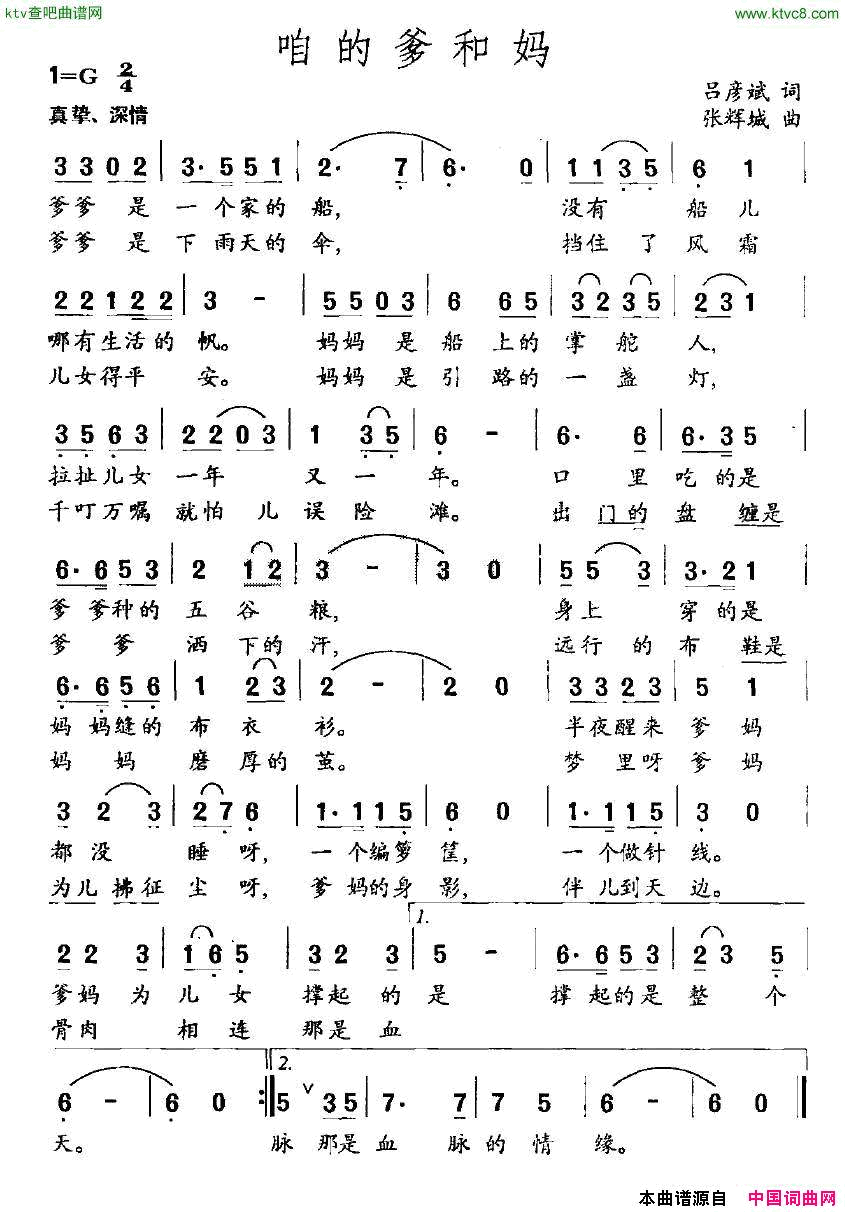 ktv查吧曲谱网
www.ktvc8.com
咱的爹和妈
1=G 2/4
真挚、深情
吕彦斌 词
张辉城 曲
3 3 0 2 | 3· 5 5 5 1 | 2· 7 | 6· 0 | 1 1 3 5 | 6 1 |
爹爹 是 一 个家的 船, 没有 船儿
爹爹 是 下 雨天的 伞, 挡住 了 风霜
2 2 1 2 2 | 3 - | 5 5 0 3 | 6 6 5 | 3 2 3 5 | 2 3 1 |
哪有生活的 帆。 妈妈 是 船 上的 掌 舵 人,
儿女得平 安。 妈妈 是 引 路的 一 盏 灯,
3 5 6 3 | 2 2 0 3 | 1 3 5 | 6 - | 6· 6 | 6· 3 5 |
拉扯儿女 一年 又 一 年。 口 里 吃 的是
千叮万嘱 就怕 儿 误 险 滩。 出 门的 盘 缠是
6· 6 5 3 | 2 1 2 | 3 - | 3 0 | 5 5 3 | 3· 2 1 |
爹 爹种的 五 谷 粮, 身上 穿 的是
爹 爹 洒 下的 汗, 远行 的 布 鞋是
6· 6 5 6 | 1 2 3 | 2 - | 2 0 | 3 3 2 3 | 5 1 |
妈 妈缝的 布 衣 衫。 半夜醒来 爹 妈
妈 妈 磨 厚的 茧。 梦 里呀 爹 妈
3 2 3 | 2 7 6 | 1· 1 1 5 | 6 0 | 1· 1 1 5 | 3 0 |
都 没 睡 呀, 一 个编箩 筐, 一 个做针 线。
为儿 拂征 尘 呀, 爹 妈的身 影, 伴 儿到天 边。
1.
2 2 3 | 1 6 5 | 3 2 3 | 5 - | 6· 6 5 3 | 2 3 5 |
爹妈 为 儿 女 撑起 的 是 撑 起的是 整 个
骨肉 相 连 那是 血
2.
6 - | 6 0 :| 5 3 5 | 7· 7 | 7 5 | 6 - | 6 0 |
天。 脉 那是 血 脉 的 情 缘。
本曲谱源自 中国词曲网